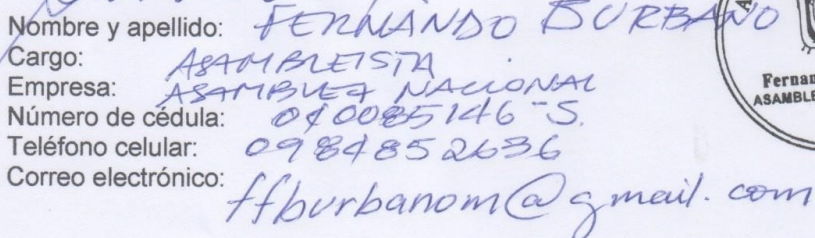 Nombre y apellido: FERNANDO BURBANO
Cargo: ASAMBLEISTA
Empresa: ASAMBLEA NACIONAL
Número de cédula: 040085146-5.
Teléfono celular: 0984852636
Correo electrónico: ffburbanom@gmail.com
Fernan
ASAMBLE